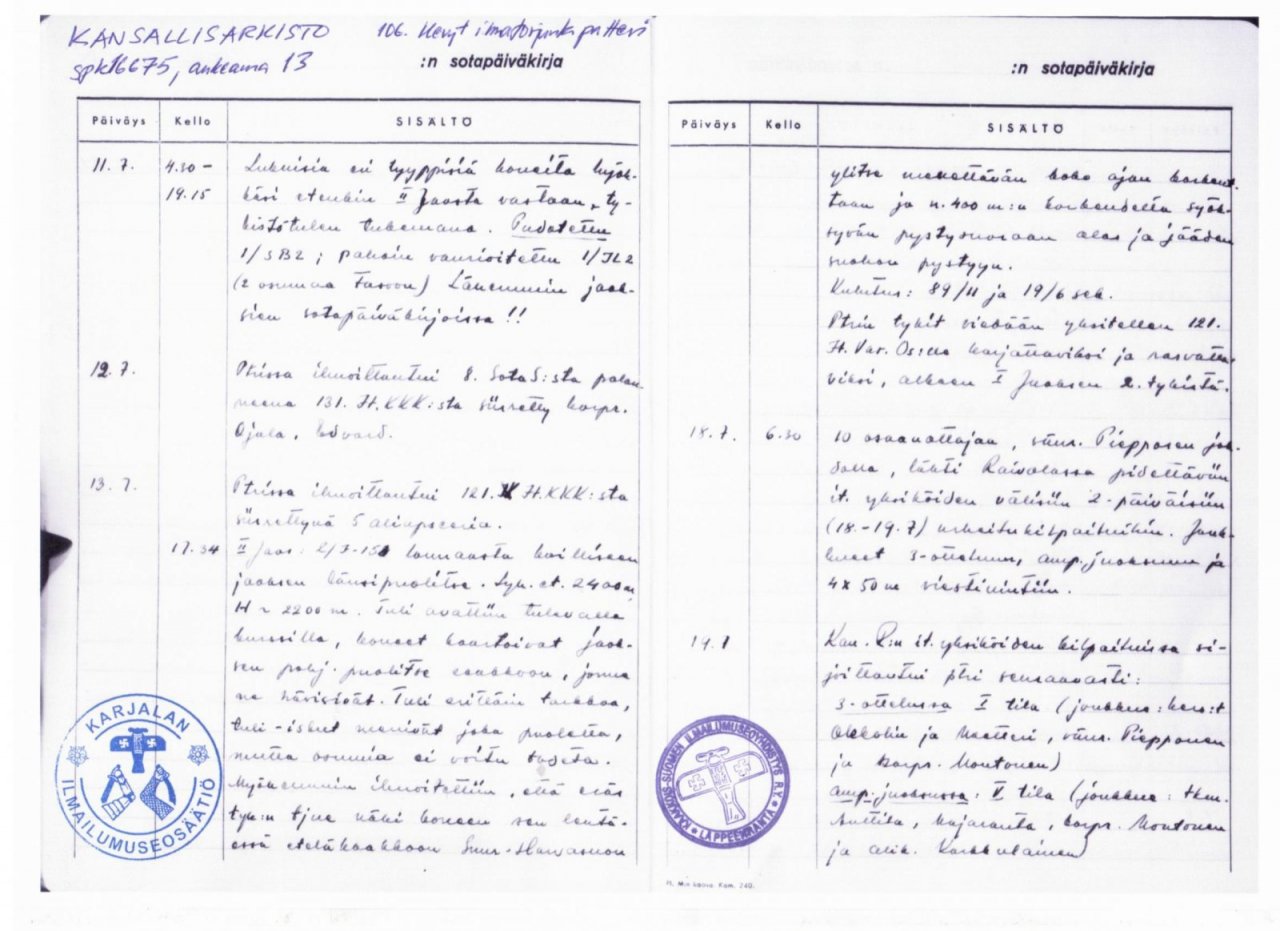 KANSALLISARKISTO
spk16675, aukeama 13
106. Kevyt ilmatorjuntapatteri
:n sotapäiväkirja
Päiväys Kello SISÄLTÖ
11.7. 4.30 – Lukuisia eri tyyppisiä koneita hyök-
19.15 käsi etenkin II Jaosta vastaan, ty-
kistötulen tukemana. Pudotettu
1/SB2 ; pahoin vaurioitettu 1/IL2
(2 osumaa tasoon) Lähemmin jaok-
sien sotapäiväkirjoissa !!
12.7. Ptrissa ilmoittautui 8. SotaS:sta palan-
neena 131. It.KKK:sta siirretty korpr.
Ojala, Edvard.
13.7. Ptrissa ilmoittautui 121. It.KKK:sta
siirrettynä 5 aliupseeria.
17.34 II Jaos: lounaasta koilliseen
jaoksen länsipuolitse. Lyh. et. 2400 m,
H ~ 2200 m. Tuli avattiin tulevalla
kurssilla, koneet kaartoivat jaok-
sen pohj. puolitse kaakkoon, jonne
ne hävisivät. Tuli erittäin tarkkaa,
tuli-iskut menivät joka puolelta,
mutta osumia ei voitu todeta.
Myöhemmin ilmoitettiin, että eräs
tyk:n tjue näki koneen sen lentä-
essä eteläkaakkoon
KARJALAN
ILMAILUMUSEOSÄÄTIÖ
:n sotapäiväkirja
Päiväys Kello SISÄLTÖ
ylitse menettävän koko ajan korkeut-
taan ja n. 400 m:n korkeudelta syök-
syvän pystysuoraan alas ja jääden
suohon pystyyn.
Kulutus: 89/II ja 19/6 sek.
Ptrin tykit viedään yksitellen 121.
It.Var.Os:lle korjattaviksi ja rasvatta-
viksi, alkaen I Jaoksen 2. tykistä.
18.7. 6.30 10 osaanottajaa, vänr. Piepposen joh-
dolla, lähti Raivolassa pidettäviin
it. yksiköiden välisiin 2-päiväisiin
(18.-19.7) urheilukilpailuihin. Jouk-
kueet 3-otteluun, amp.juoksuun ja
4x50 m viestiuintiin.
19.7 Kan. R:n it.yksiköiden kilpailuissa si-
joittautui ptri seuraavasti:
3-ottelussa I tila (joukkue: kers:t
ja, vänr. Piepponen
ja korpr. Montonen)
amp.juoksussa: V tila (joukkue: tkm.
Majaranta, korpr. Montonen
ja alik. Karhulainen)
KAAKKOIS-SUOMEN ILMAILUMUSEOYHDISTYS R.Y.
LAPPEENRANTA